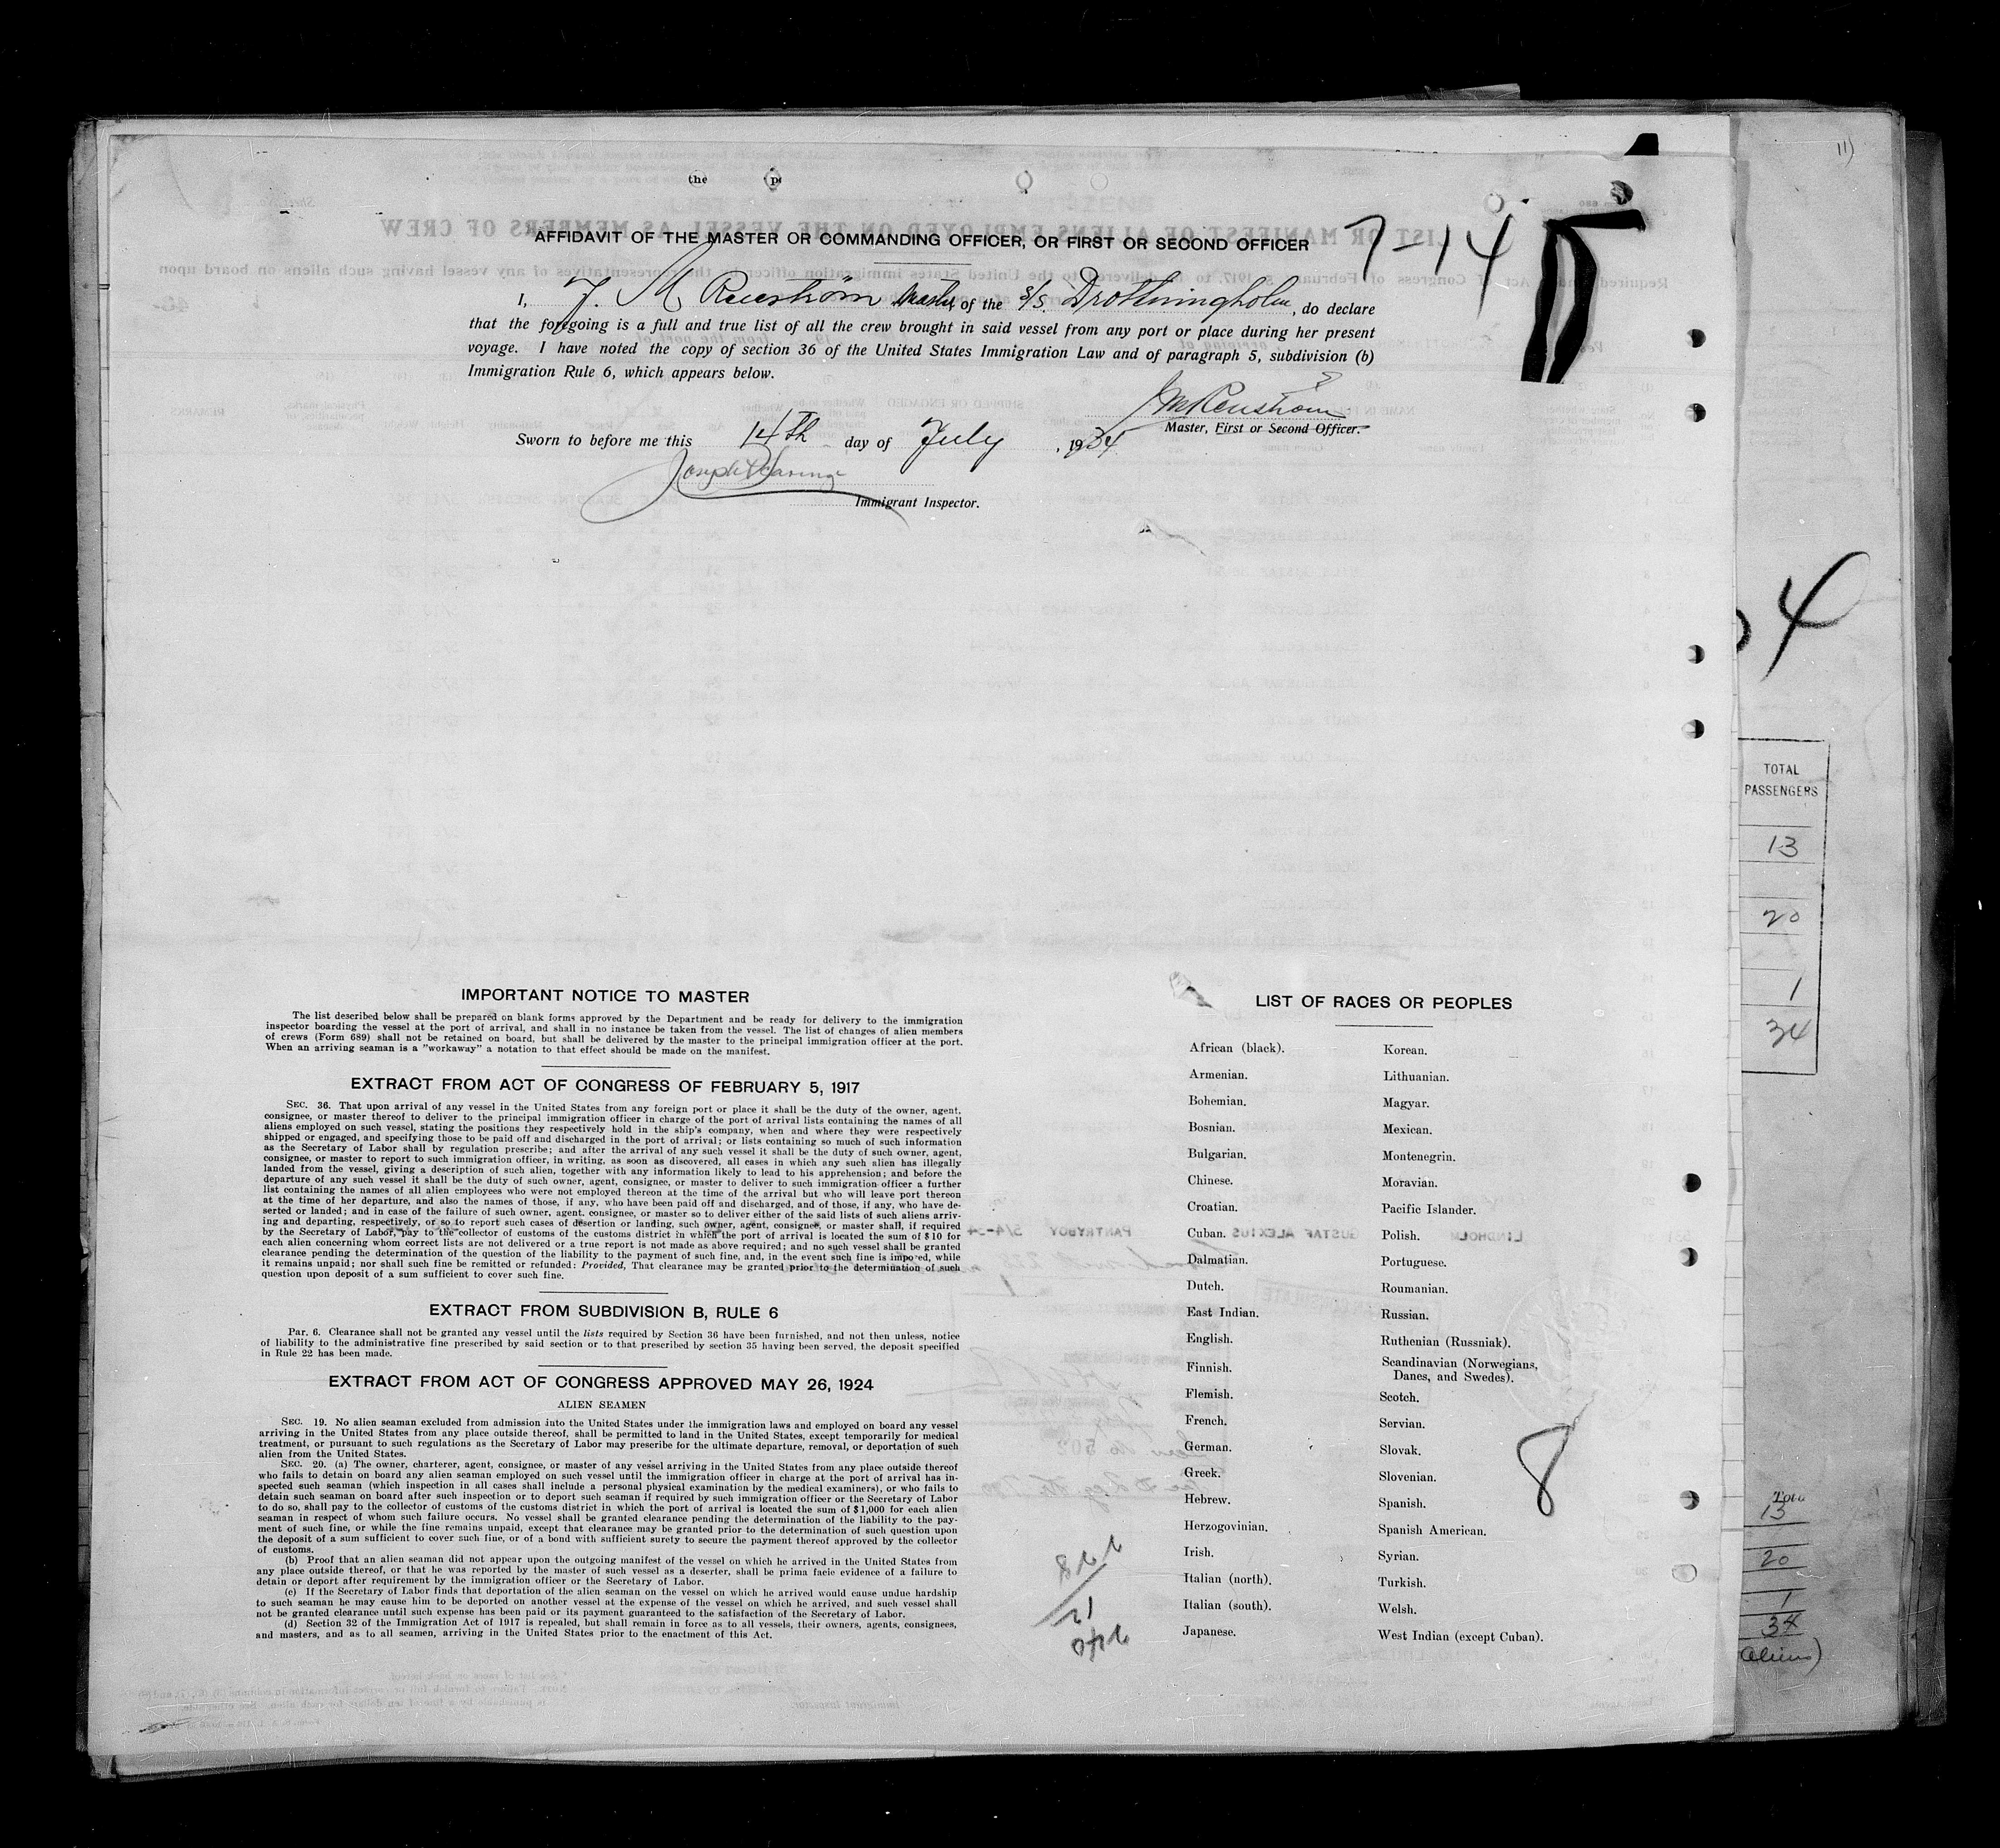 11)
AFFIDAVIT OF THE MASTER OR COMMANDING OFFICER, OR FIRST OR SECOND OFFICER
7-14
I, J. M Renström Master of the S/S. Drottningholm, do declare
that the foregoing is a full and true list of all the crew brought in said vessel from any port or place during her present
voyage. I have noted the copy of section 36 of the United States Immigration Law and of paragraph 5, subdivision (b)
Immigration Rule 6, which appears below.
JM Renström
Master, First or Second Officer.
Sworn to before me this 14th day of July, 1934
Immigrant Inspector.
4
TOTAL
PASSENGERS
13
20
1
34
IMPORTANT NOTICE TO MASTER
The list described below shall be prepared on blank forms approved by the Department and be ready for delivery to the immigration
inspector boarding the vessel at the port of arrival, and shall in no instance be taken from the vessel. The list of changes of alien members
of crews (Form 689) shall not be retained on board, but shall be delivered by the master to the principal immigration officer at the port.
When an arriving seaman is a "workaway" a notation to that effect should be made on the manifest.
EXTRACT FROM ACT OF CONGRESS OF FEBRUARY 5, 1917
SEC. 36. That upon arrival of any vessel in the United States from any foreign port or place it shall be the duty of the owner, agent,
consignee, or master thereof to deliver to the principal immigration officer in charge of the port of arrival lists containing the names of all
aliens employed on such vessel, stating the positions they respectively hold in the ship's company, when and where they were respectively
shipped or engaged, and specifying those to be paid off and discharged in the port of arrival; or lists containing so much of such information
as the Secretary of Labor shall by regulation prescribe; and after the arrival of any such vessel it shall be the duty of such owner, agent,
consignee, or master to report to such immigration officer, in writing, as soon as discovered, all cases in which any such alien has illegally
landed from the vessel, giving a description of such alien, together with any information likely to lead to his apprehension; and before the
departure of any such vessel it shall be the duty of such owner, agent, consignee, or master to deliver to such immigration officer a further
list containing the names of all alien employees who were not employed thereon at the time of the arrival but who will leave port thereon
at the time of her departure, and also the names of those, if any, who have been paid off and discharged, and of those, if any, who have de-
serted or landed; and in case of the failure of such owner, agent, consignee, or master so to deliver either of the said lists of such aliens arriv-
ing and departing, respectively, or so to report such cases of desertion or landing, such owner, agent, consignee, or master shall, if required
by the Secretary of Labor, pay to the collector of customs of the customs district in which the port of arrival is located the sum of $10 for
each alien concerning whom correct lists are not delivered or a true report is not made as above required; and no such vessel shall be granted
clearance pending the determination of the question of the liability to the payment of such fine, and, in the event such fine is imposed, while
it remains unpaid; nor shall such fine be remitted or refunded: Provided, That clearance may be granted prior to the determination of such
question upon deposit of a sum sufficient to cover such fine.
EXTRACT FROM SUBDIVISION B, RULE 6
Par. 6. Clearance shall not be granted any vessel until the lists required by Section 36 have been furnished, and not then unless, notice
of liability to the administrative fine prescribed by said section or to that prescribed by section 35 having been served, the deposit specified
in Rule 22 has been made.
EXTRACT FROM ACT OF CONGRESS APPROVED MAY 26, 1924
ALIEN SEAMEN
SEC. 19. No alien seaman excluded from admission into the United States under the immigration laws and employed on board any vessel
arriving in the United States from any place outside thereof, shall be permitted to land in the United States, except temporarily for medical
treatment, or pursuant to such regulations as the Secretary of Labor may prescribe for the ultimate departure, removal, or deportation of such
alien from the United States.
SEC. 20. (a) The owner, charterer, agent, consignee, or master of any vessel arriving in the United States from any place outside thereof
who fails to detain on board any alien seaman employed on such vessel until the immigration officer in charge at the port of arrival has in-
spected such seaman (which inspection in all cases shall include a personal physical examination by the medical examiners), or who fails to
detain such seaman on board after such inspection or to deport such seaman if required by such immigration officer or the Secretary of Labor
to do so, shall pay to the collector of customs of the customs district in which the port of arrival is located the sum of $1,000 for each alien
seaman in respect of whom such failure occurs. No vessel shall be granted clearance pending the determination of the liability to the pay-
ment of such fine, or while the fine remains unpaid, except that clearance may be granted prior to the determination of such question upon
the deposit of a sum sufficient to cover such fine, or of a bond with sufficient surety to secure the payment thereof approved by the collector
of customs.
(b) Proof that an alien seaman did not appear upon the outgoing manifest of the vessel on which he arrived in the United States from
any place outside thereof, or that he was reported by the master of such vessel as a deserter, shall be prima facie evidence of a failure to
detain or deport after requirement by the immigration officer or the Secretary of Labor.
(c) If the Secretary of Labor finds that deportation of the alien seaman on the vessel on which he arrived would cause undue hardship
to such seaman he may cause him to be deported on another vessel at the expense of the vessel on which he arrived, and such vessel shall
not be granted clearance until such expense has been paid or its payment guaranteed to the satisfaction of the Secretary of Labor.
(d) Section 32 of the Immigration Act of 1917 is repealed, but shall remain in force as to all vessels, their owners, agents, consignees,
and masters, and as to all seamen, arriving in the United States prior to the enactment of this Act.
LIST OF RACES OR PEOPLES
African (black).
Armenian.
Bohemian.
Bosnian.
Bulgarian.
Chinese.
Croatian.
Cuban.
Dalmatian.
Dutch.
East Indian.
English.
Finnish.
Flemish.
French.
German.
Greek.
Hebrew.
Herzogovinian.
Irish.
Italian (north).
Italian (south).
Japanese.
Korean.
Lithuanian.
Magyar.
Mexican.
Montenegrin.
Moravian.
Pacific Islander.
Polish.
Portuguese.
Roumanian.
Russian.
Ruthenian (Russniak).
Scandinavian (Norwegians,
Danes, and Swedes).
Scotch.
Servian.
Slovak.
Slovenian.
Spanish.
Spanish American.
Syrian.
Turkish.
Welsh.
West Indian (except Cuban).
8
13
20
1
34
Aliens)